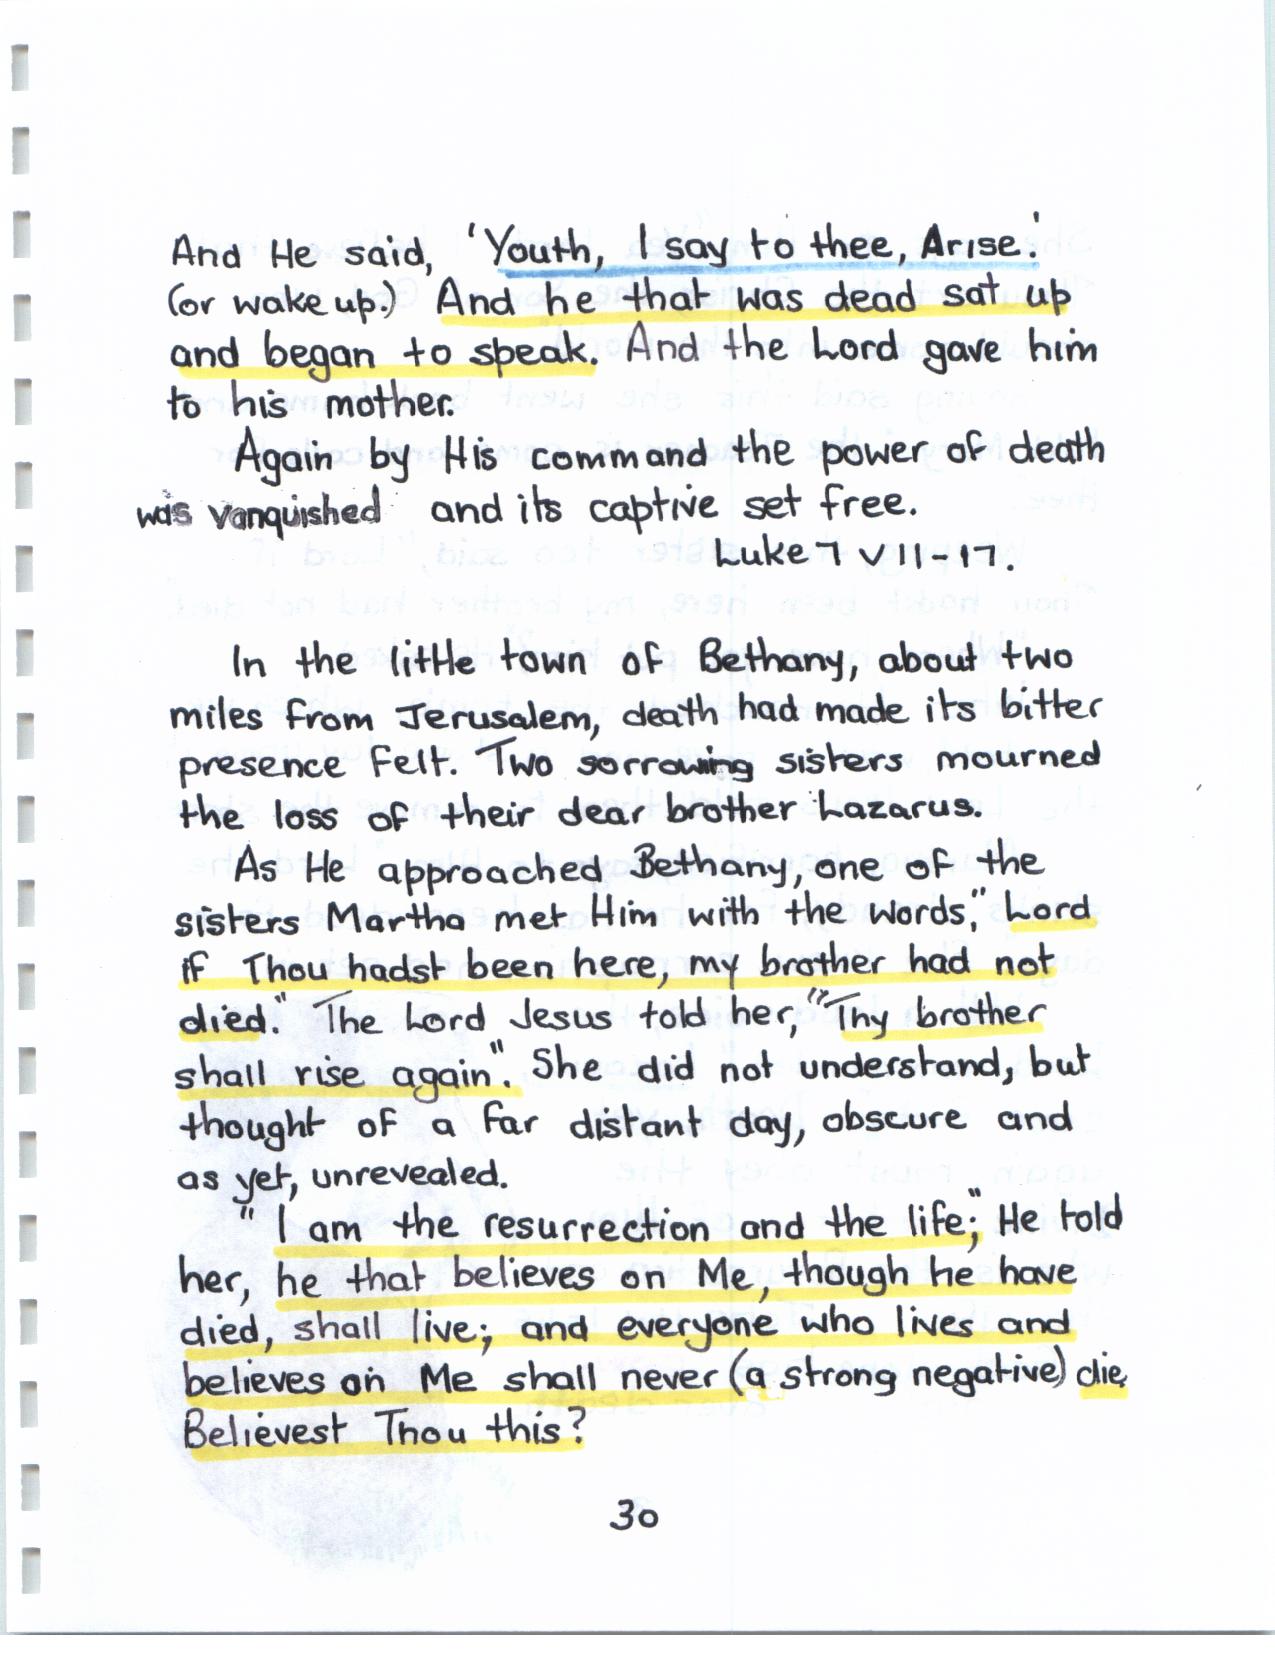 And He said, 'Youth, I say to thee, Arise.'
(or wake up.) And he that was dead sat up
and began to speak. And the Lord gave him
to his mother.
Again by His command the power of death
was vanquished and its captive set free.
Luke 7 v 11-17.
In the little town of Bethany, about two
miles from Jerusalem, death had made its bitter
presence felt. Two sorrowing sisters mourned
the loss of their dear brother Lazarus.
As He approached Bethany, one of the
sisters Martha met Him with the words, "Lord
if Thou hadst been here, my brother had not
died." The Lord Jesus told her, "Thy brother
shall rise again". She did not understand, but
thought of a far distant day, obscure and
as yet, unrevealed.
"I am the resurrection and the life;" He told
her, he that believes on Me, though he have
died, shall live; and everyone who lives and
believes on Me shall never (a strong negative) die.
Believest Thou this?
30